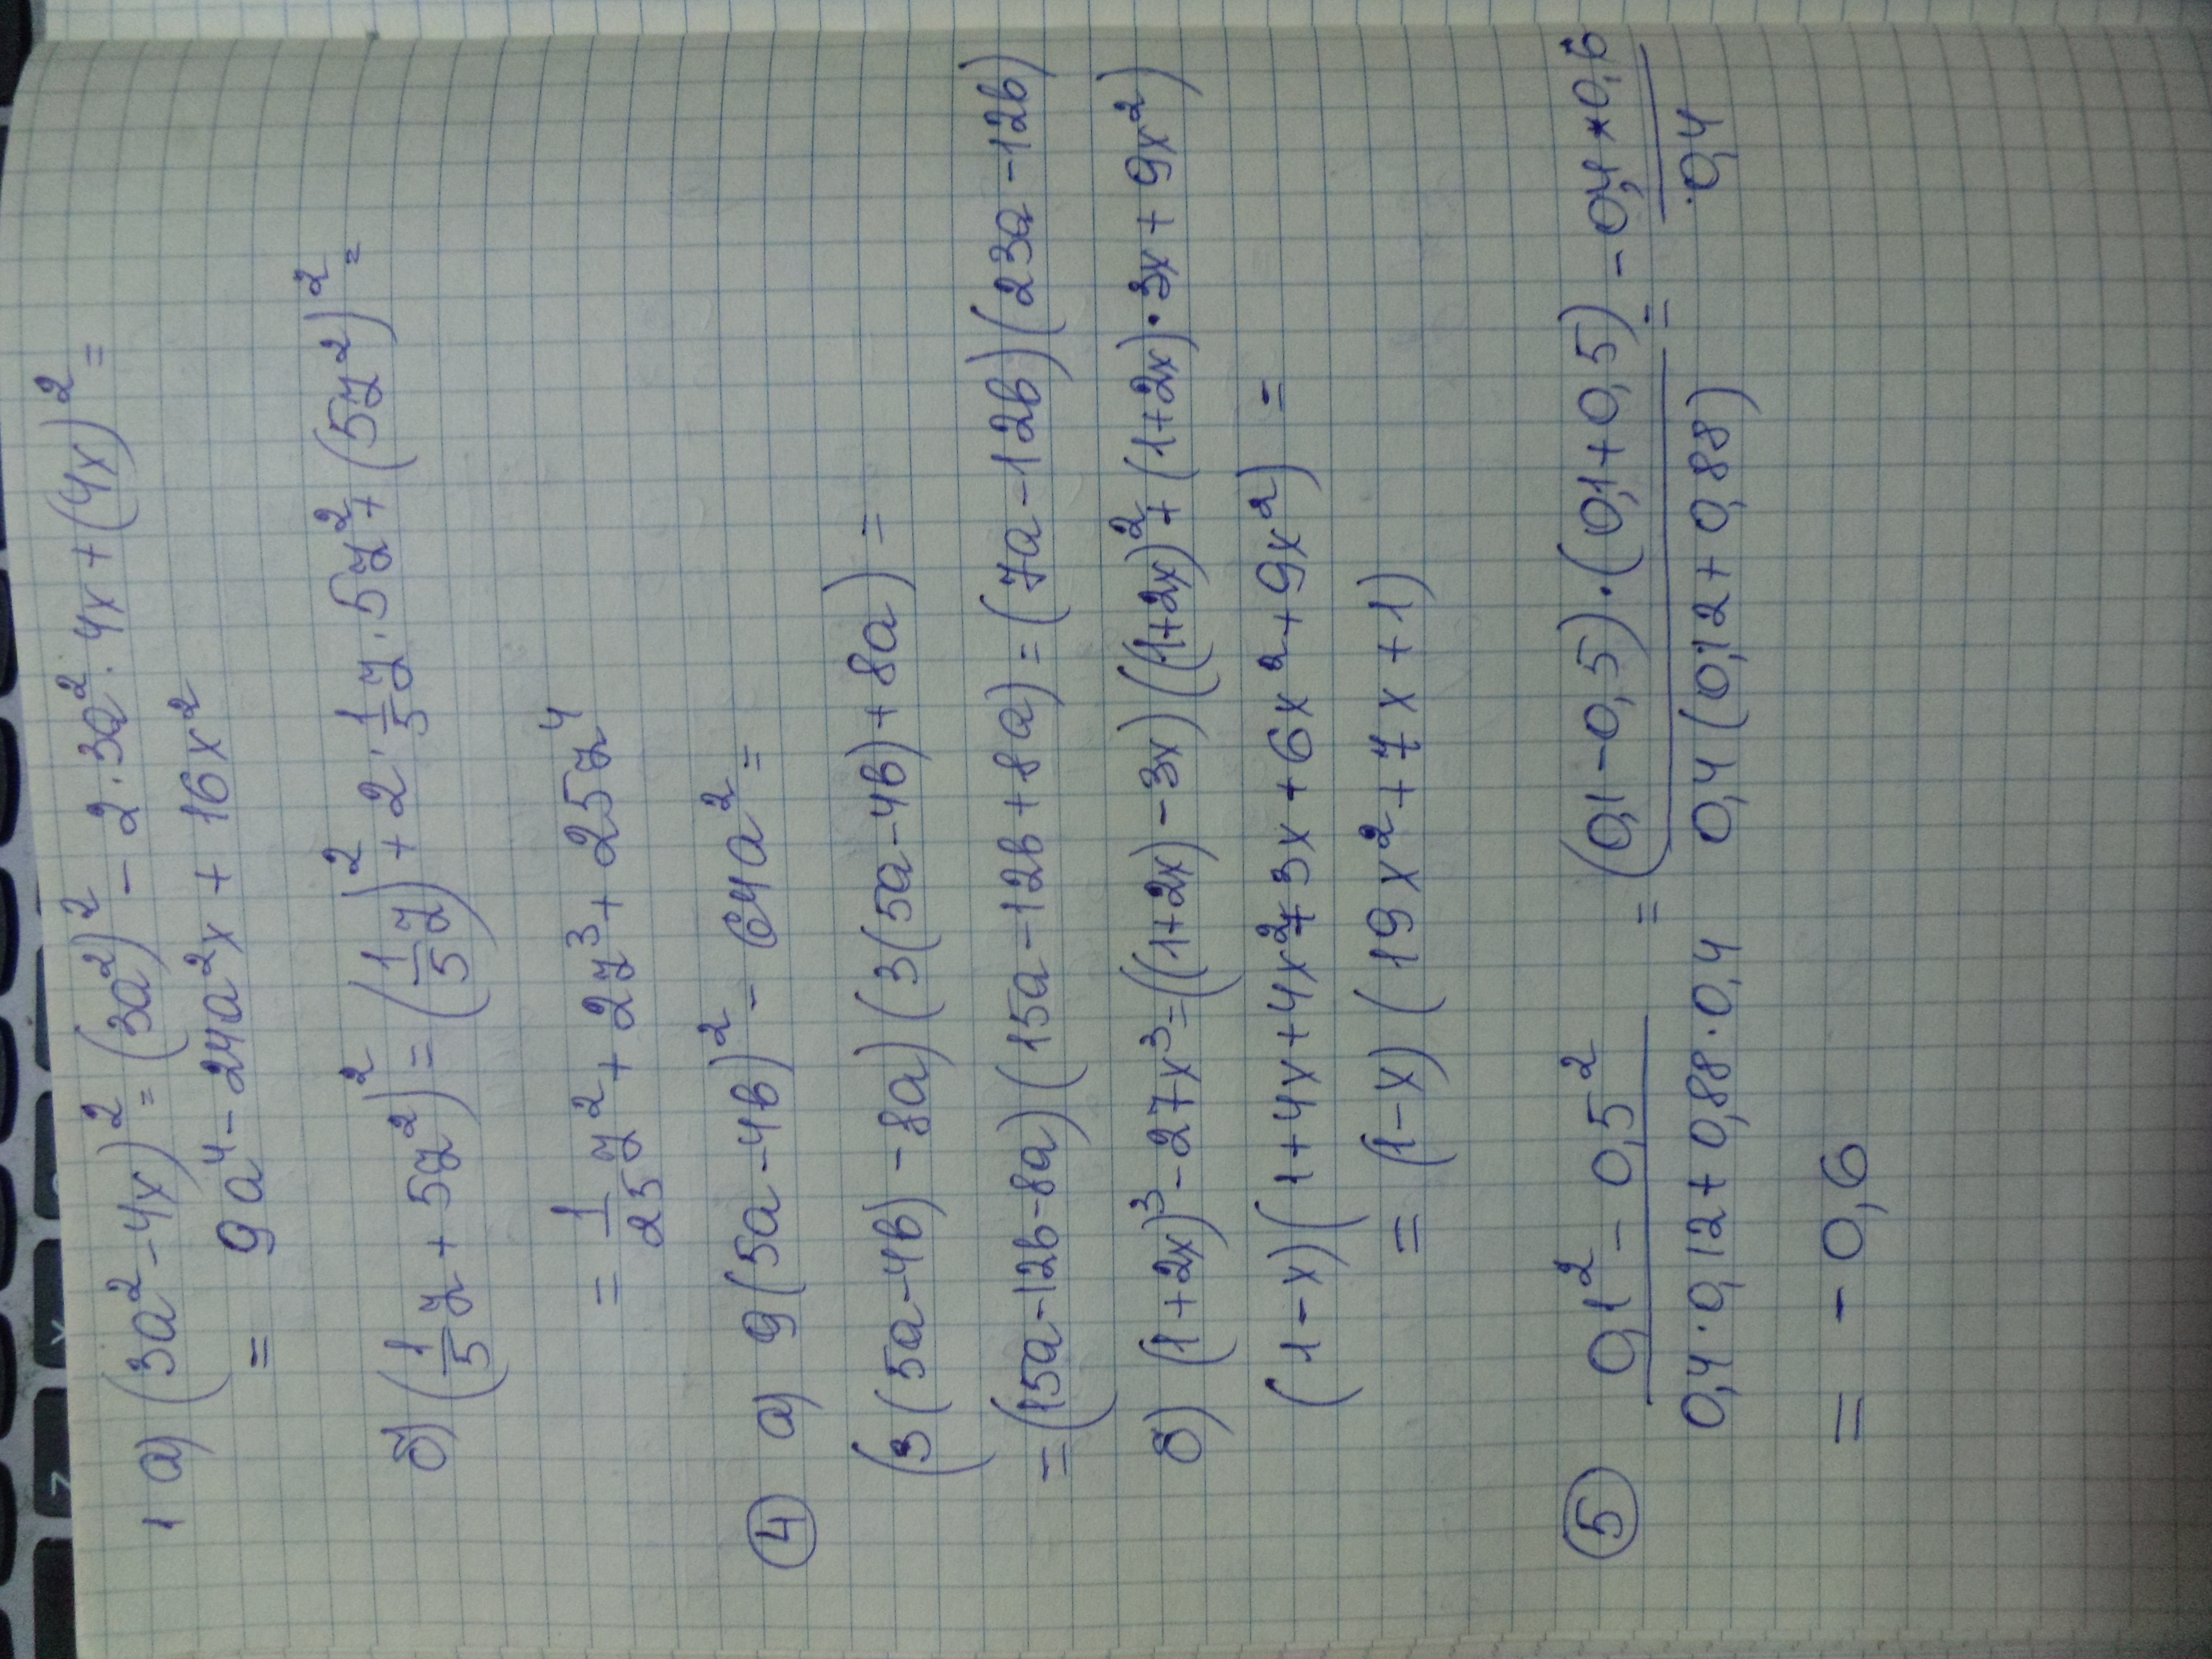 1 а) (3a² - 4x)² = (3a²)² - 2 · 3a² · 4x + (4x)² =
= 9a⁴ - 24a²x + 16x²
б) (1/5 y + 5y²)² = (1/5 y)² + 2 · 1/5 y · 5y² + (5y²)² =
= 1/25 y² + 2y³ + 25y⁴
④ а) 9(5a - 4b)² - 64a² =
(3(5a - 4b) - 8a)(3(5a - 4b) + 8a) =
= (15a - 12b - 8a)(15a - 12b + 8a) = (7a - 12b)(23a - 12b)
б) (1 + 2x)³ - 27x³ = ((1+2x) - 3x)((1+2x)² + (1+2x)·3x + 9x²)
(1 - x)(1 + 4x + 4x² + 3x + 6x² + 9x²) =
= (1 - x)(19x² + 7x + 1)
⑤ 0,1² - 0,5² / 0,4 · 0,12 + 0,88 · 0,4 = (0,1 - 0,5) · (0,1 + 0,5) / 0,4 (0,12 + 0,88) = -0,4 * 0,6 / 0,4
= - 0,6